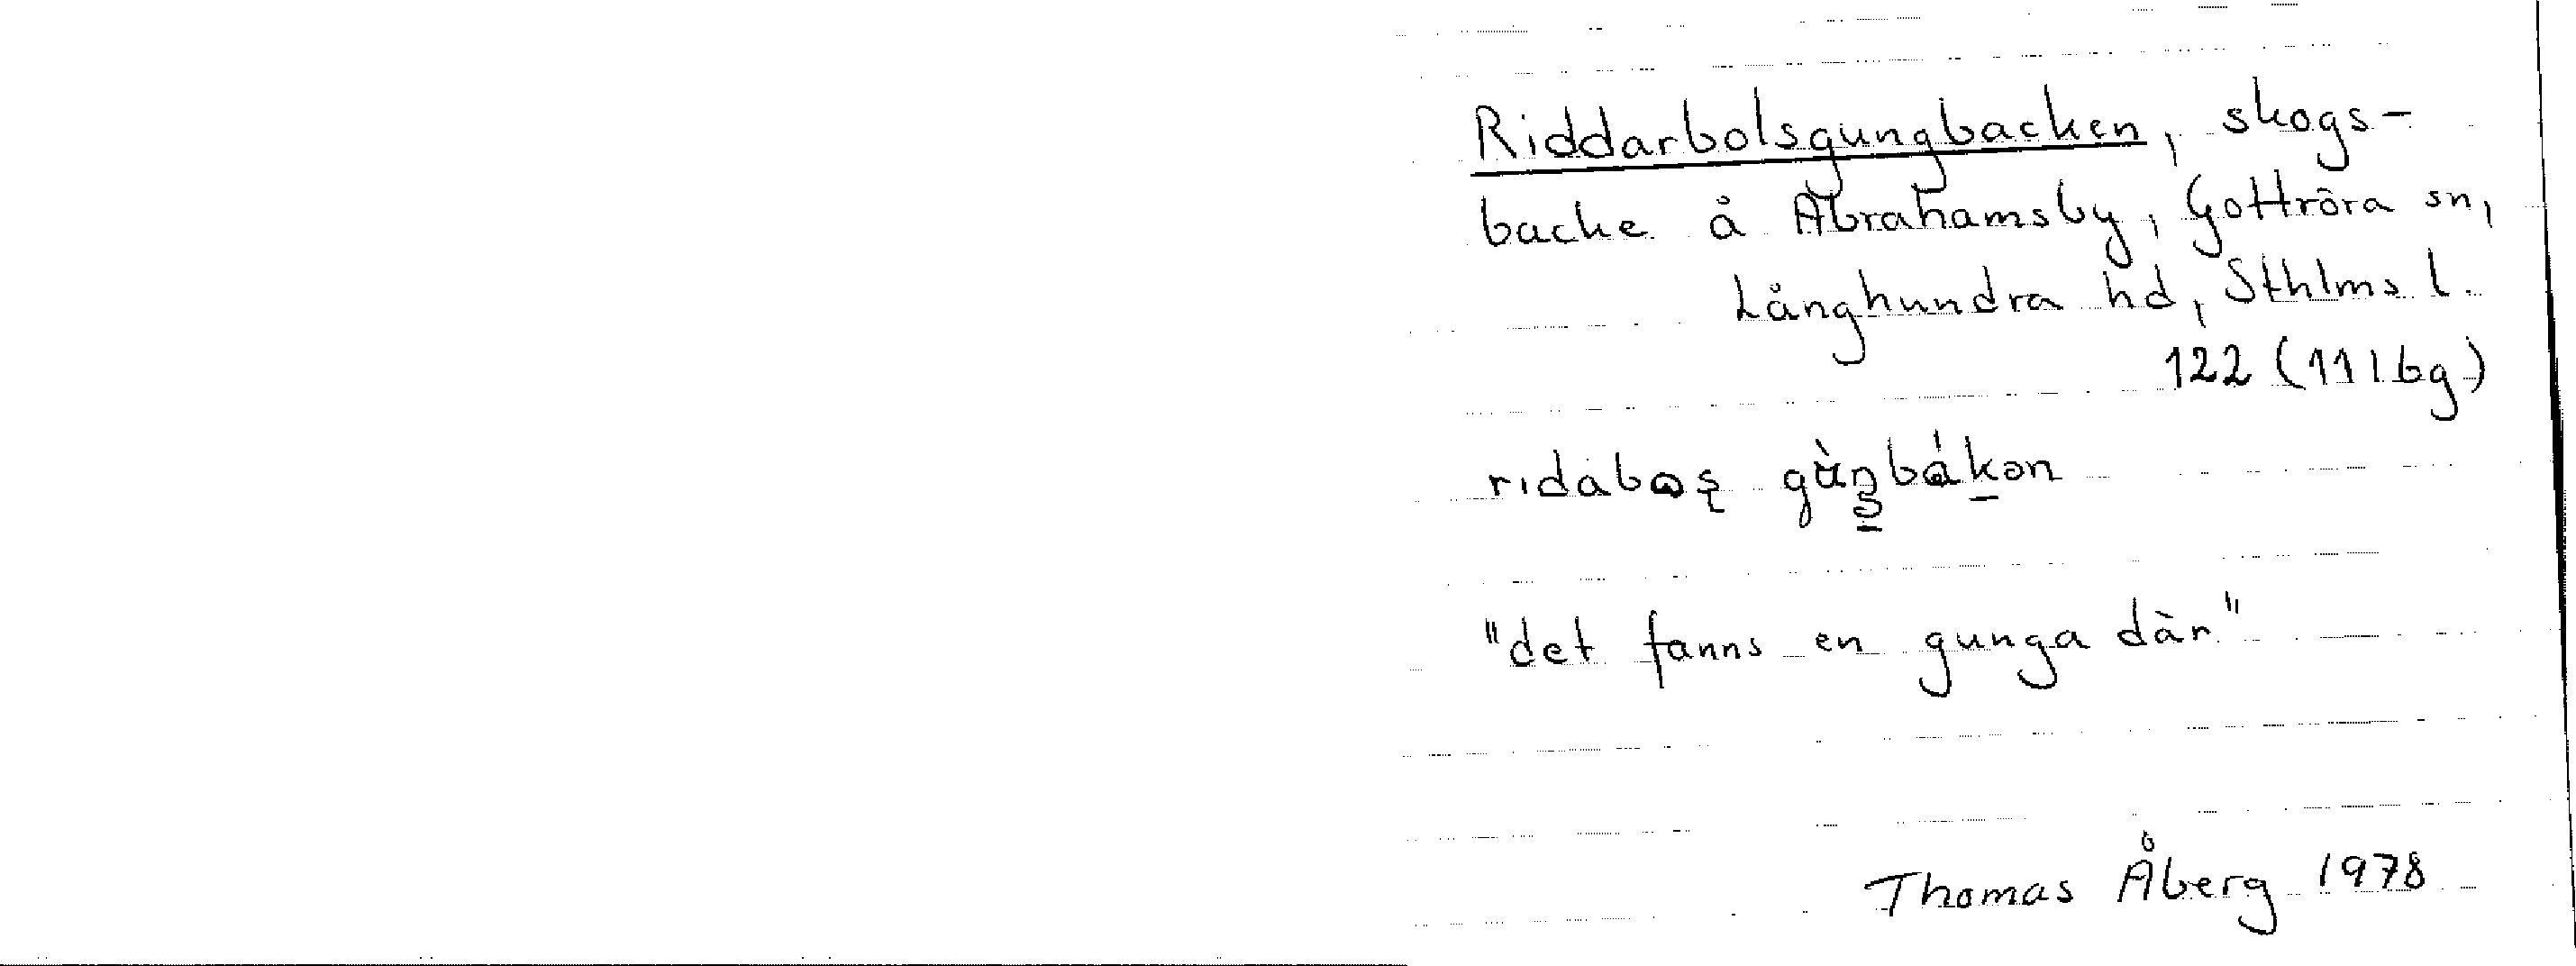 Riddarbolsgungbacken, skogs-
backe å Abrahamsby, Gottröra sn,
Långhundra hd, Sthlms l.
122 (11 I 6g)
"det fanns en gunga där"
Thomas Åberg 1978